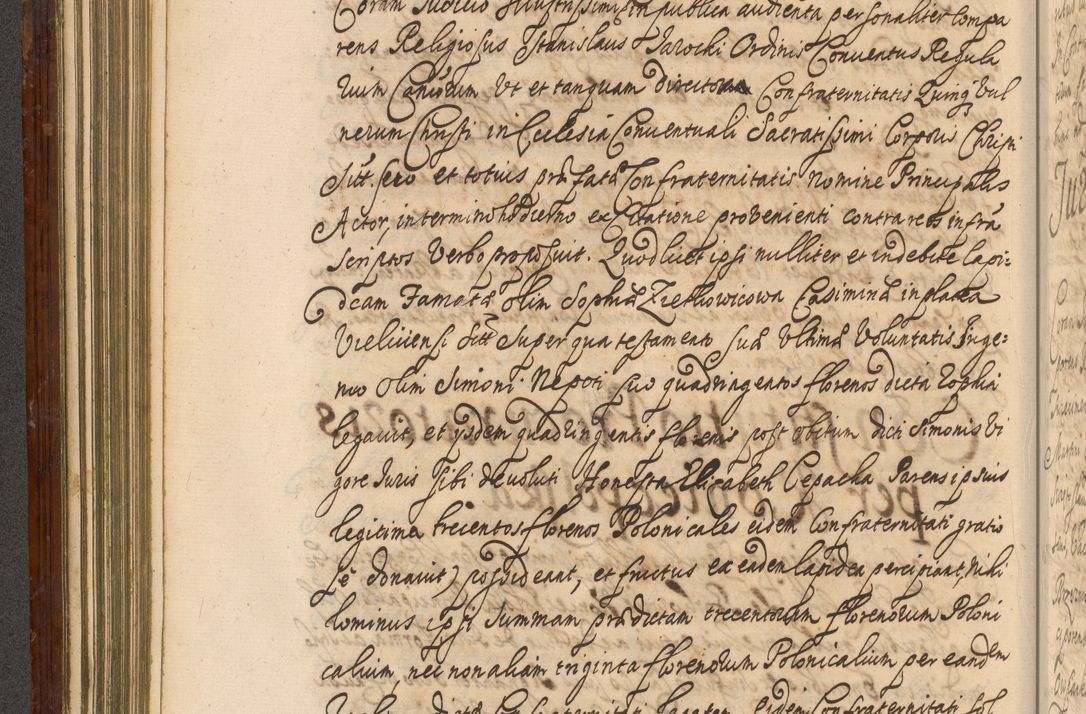 Coram Judicio Illustrissimi in publica audientia personaliter Compa
rens Religiosus Stanislaus Jarocki Ordinis Conventus Regula
rium Can̄corum Vt et tanquam director Confraternitatis Quinq Vul
nerum Christi in Ecclesia Conventuali Sacratissimi Corporis Christi
Sitt. suo et totius præfatæ Confraternitatis nomine Principalis
Actor, in termino hodierno ex Citatione provenienti contra reos infra
scriptos Verbo proposuit. Quod licet ipsi nulliter et indebite lapi:
deam Famatæ olim Sophiæ Ziethowicowa Casimiriæ in platea
Vieliciensi Sitt Super qua testamento suæ Vltimæ Voluntatis Inge:
nuo Olim Simoni Nepoti suo quadringentos florenos dicta Zophia
legavit, et ijsdem quadringentis florenis post obitum dicti Simonis Vi
gore Juris Sibi devoluti Honesta Elisabeth Cepacka Parens ipsius
legitima trecentos florenos Polonicales eidem Confraternitati gratio
se donavit) possideant, et fructus ex eadem lapidea percipiant, Nihi
lominus ipsi Summam prædictam trecentorum florenorum Poloni
calium, nec non aliam triginta florenorum Polonicalium per eandem